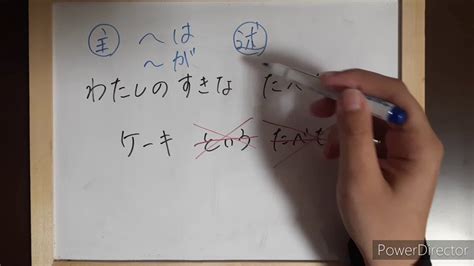 主 〜は 述
〜が
わたしの すきな たべ
ケーキ という たべも
PowerDirector